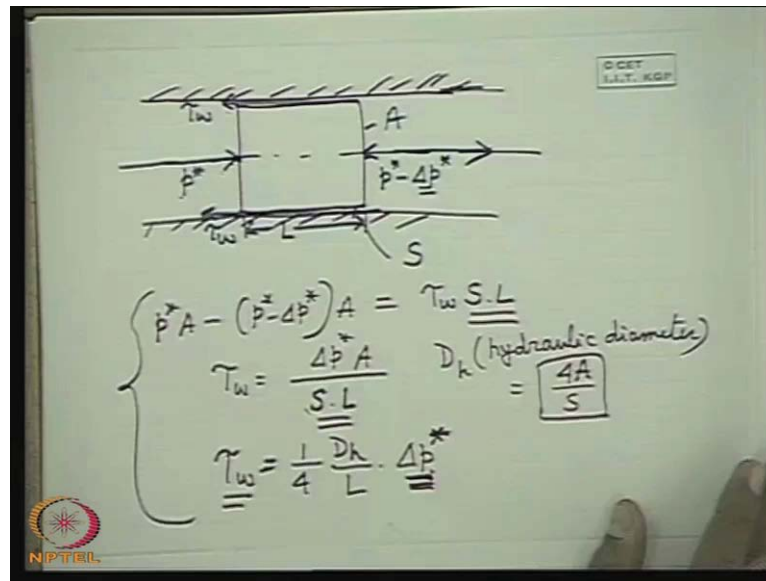 © CET
I.I.T. KGP
τw
A
p*
p* - Δp*
τw L
S
p*A - (p* - Δp*) A = τw S.L
τw = Δp* A / S.L
Dh (hydraulic diameter)
= 4A / S
τw = 1/4 Dh/L . Δp*
NPTEL